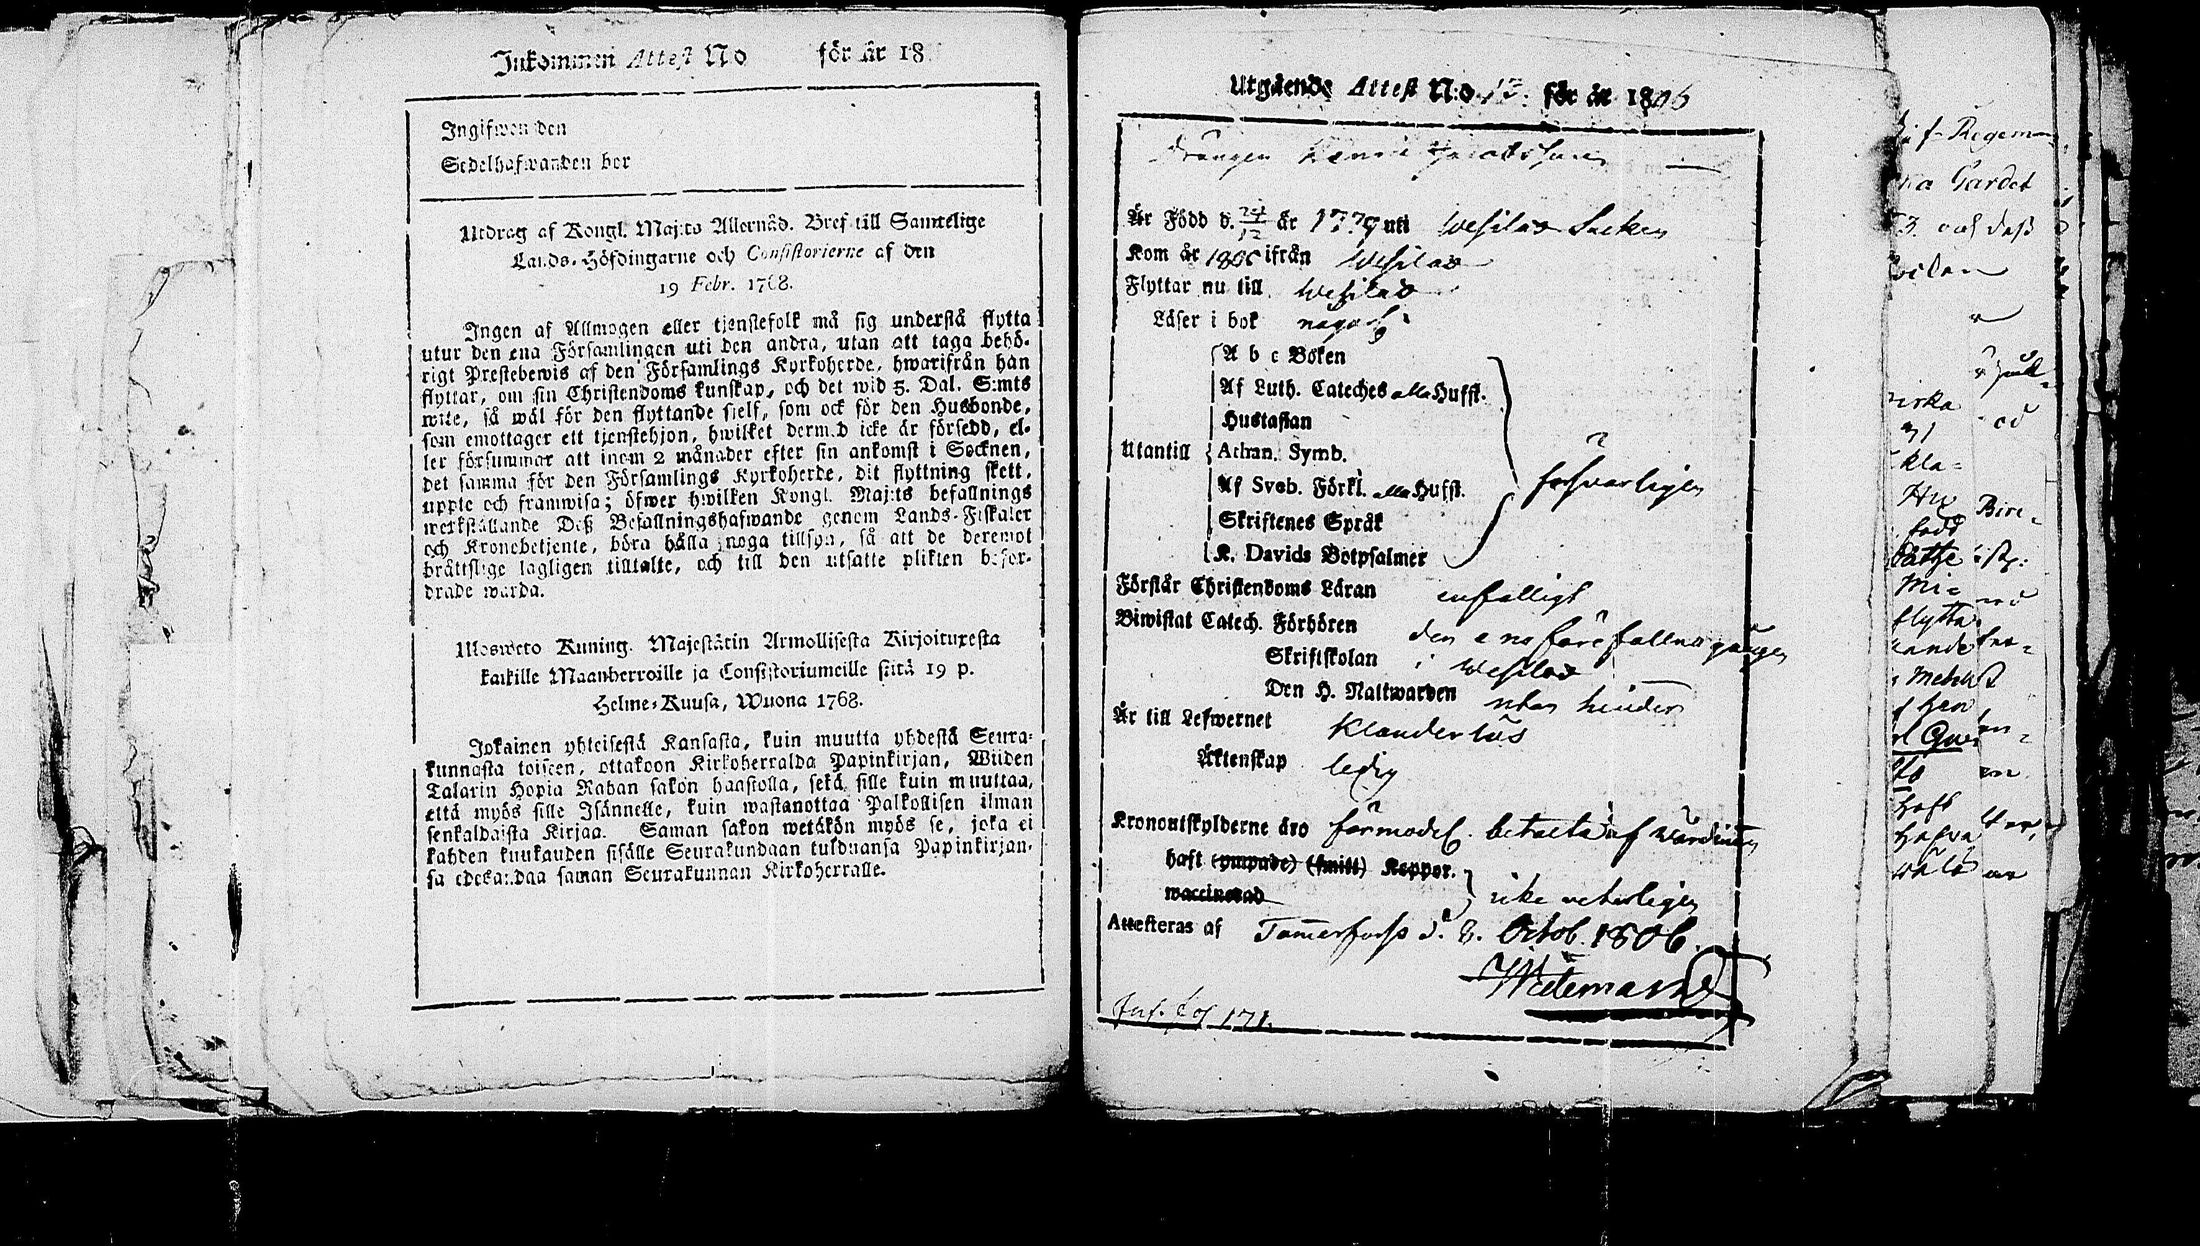 Inkommen Attest No för år 18
Ingifwen den
Sedelhafwanden bor
Utdrag af Kongl. Maj:ts Allernåd. Bref till Samtelige
Lands-Höfdingarne och Consistorierne af den
19 Febr. 1768.
Ingen af Allmogen eller tjenstefolk må sig understå flytta
utur den ena Församlingen uti den andra, utan att taga behö-
rigt Prestebewis af den Församlings Kyrkoherde, hwarifrån han
flyttar, om sin Christendoms kunskap, och det wid 5. Dal. S:mts
wite, så wäl för den flyttande sielf, som ock för den Husbonde,
som emottager ett tjenstehjon, hwilket dermed icke är försedd, el-
ler försummar att inom 2 månader efter sin ankomst i Socknen,
det samma för den Församlings Kyrkoherde, dit flyttning skett,
uppte och framwisa; öfwer hwilken Kongl. Maj:ts befallnings
werkställande Deß Befallningshafwande genom Lands-Fiskaler
och Kronobetjente, böra hålla noga tillsyn, så att de deremot
bråttslige lagligen tilltalte, och till den utsatte plikten befor-
drade warda.
Ulosweto Kuning. Majestätin Armollisesta Kirjoituxesta
kaikille Maanherroille ja Consistoriumeille siitä 19 p.
Helme-Kuusa, Wuona 1768.
Jokainen yhteisestä Kansasta, kuin muutta yhdestä Seura-
kunnasta toiseen, ottakoon Kirkoherralda Papinkirjan, Wiiden
Talarin Hopia Rahan sakon haastolla, sekä sille kuin muuttaa,
että myös sille Isännelle, kuin wastanottaa Palkollisen ilman
senkaldaista Kirjaa. Saman sakon wetäkön myös se, joka ei
kahden kuukauden sisälle Seurakundaan tulduansa Papinkirjan-
sa edesandaa saman Seurakunnan Kirkoherralle.
Utgående Attest N:o 13. för år 1806
Drängen Henric
Är Född d. 24/12 år 1779 uti Wesilax Socken
Kom år 1806 ifrån Wesilax
Flyttar nu till Wesilax
Läser i bok någorl.
A b c Boken
Af Luth. Cateches alla Hufst.
Hustaflan
Utantill Athan. Symb.
Af Sveb. Förkl. alla Hufst. försvarligen
Skriftenes Språk
K. Davids Botpsalmer
Förstår Christendoms Läran enfalligt
Biwistat Catech. Förhören den ena förefallna gången
Skriftskolan i Wesilax
Den H. Nattwarden utan hinder
Är till Lefwernet Klanderlös
Äktenskap ledig
Kronoutskylderne äro förmodel. betalta af
haft (ympade) (smitt) Koppor.
waccinerad icke veterligen
Attesteras af Tammerfors d. 8. Octob. 1806.
Inf. fog 171.